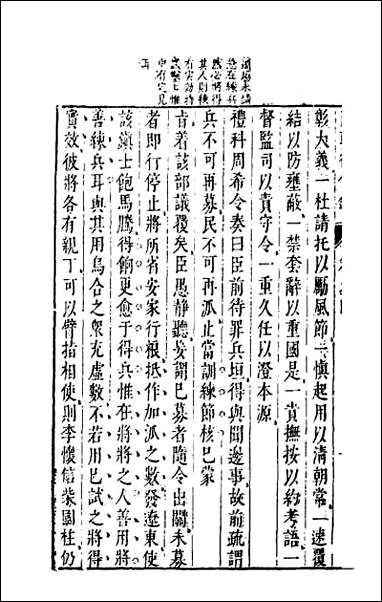 調趨未講
急在練兵
然必將得
其人則練
有实効時
咸弊上惟
中有定見
耳
彰大義一杜請托以勵風節一慎起用以清朝常一速覆
結以防壅蔽一禁套辭以重國是一責撫按以約考語一
督監司以責守令一重久任以澄本源
禮科周希令奏曰臣前待罪兵垣得與聞邊事故前疏謂
兵不可再募民不可再派止當訓練節核已蒙
旨着該部議覆矣臣愚靜聽妄謂已募者隨令出關未募
者即行停止將所省安家行糧抵作加派之數發遼東使
該鎮士飽馬騰得餉更愈于得兵惟在將將之人善用將
善練兵耳與其用烏合之眾充虛數不若用已試之將得
實效彼將各有親丁可以臂指相使則李懷信柴國柱仍